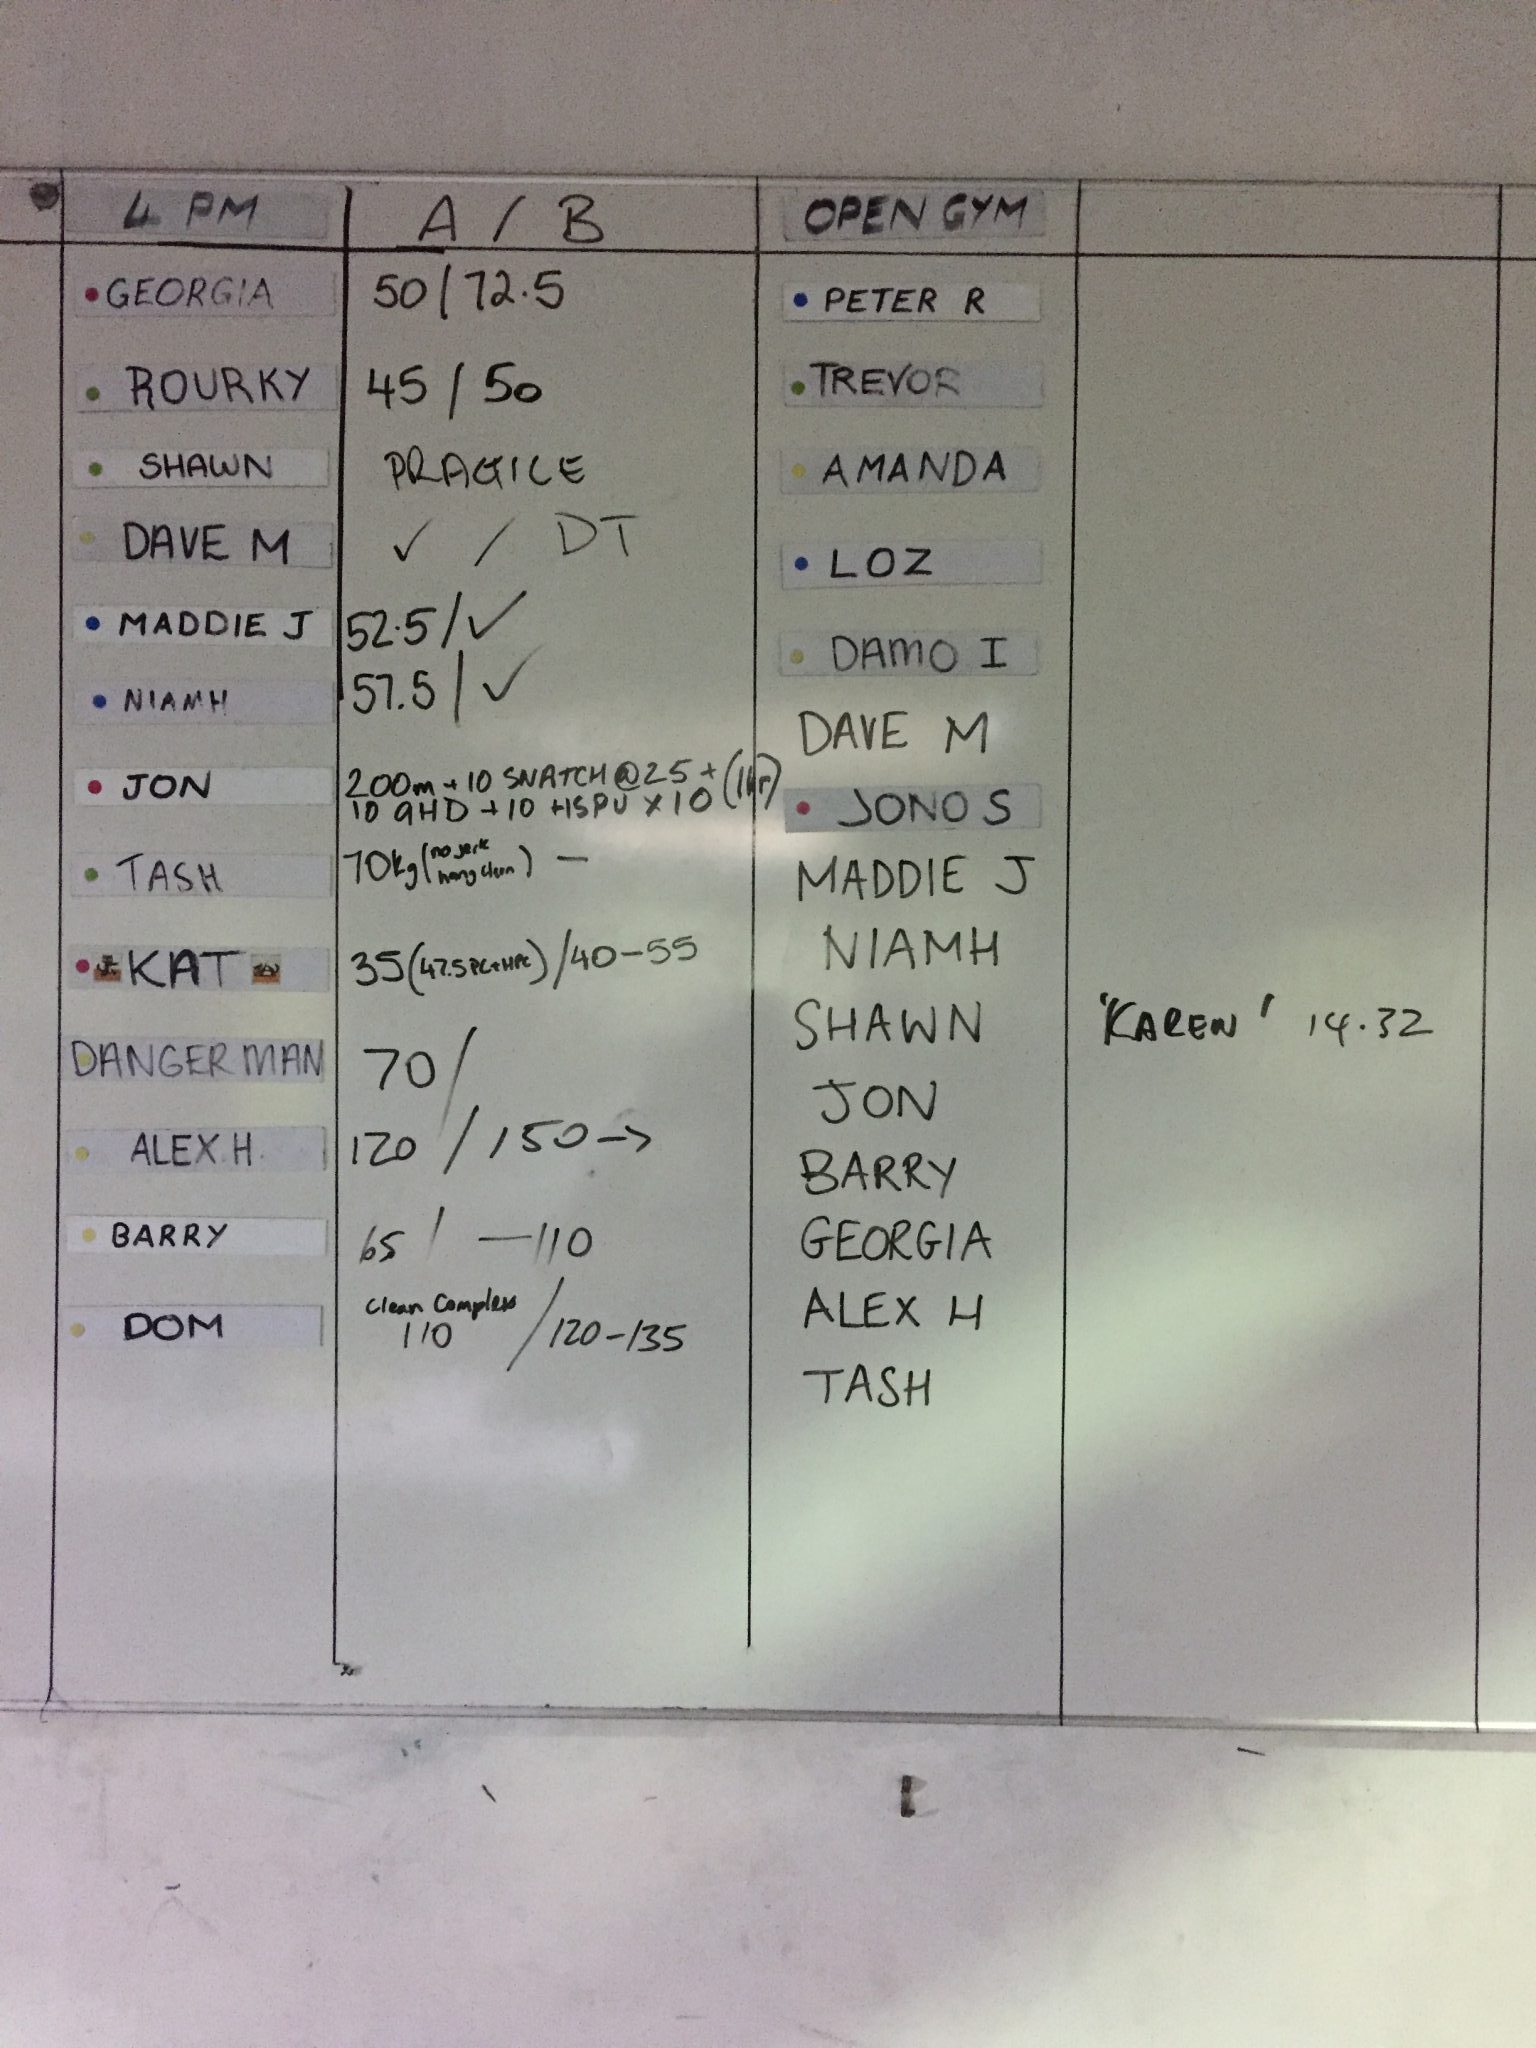 4 PM A / B OPEN GYM
GEORGIA 50 / 72.5 PETER R
ROURKY 45 / 50 TREVOR
SHAWN PRACTICE AMANDA
DAVE M ✓ / DT LOZ
MADDIE J 52.5 / ✓ DAMO I
NIAMH 57.5 / ✓ DAVE M
JON 200m + 10 SNATCH @ 25 +
10 GHD + 10 HSPU x 10 JONO S
TASH 70kg (no jerk hang clean) — MADDIE J
KAT 35 (47.5 PC+HPC) / 40-55 NIAMH
DANGERMAN 70 / SHAWN 'KAREN' 14.32
JON
ALEX.H. 120 / 150 → BARRY
BARRY 65 / — 110 GEORGIA
DOM Clean Complex
110 / 120-135 ALEX H
TASH